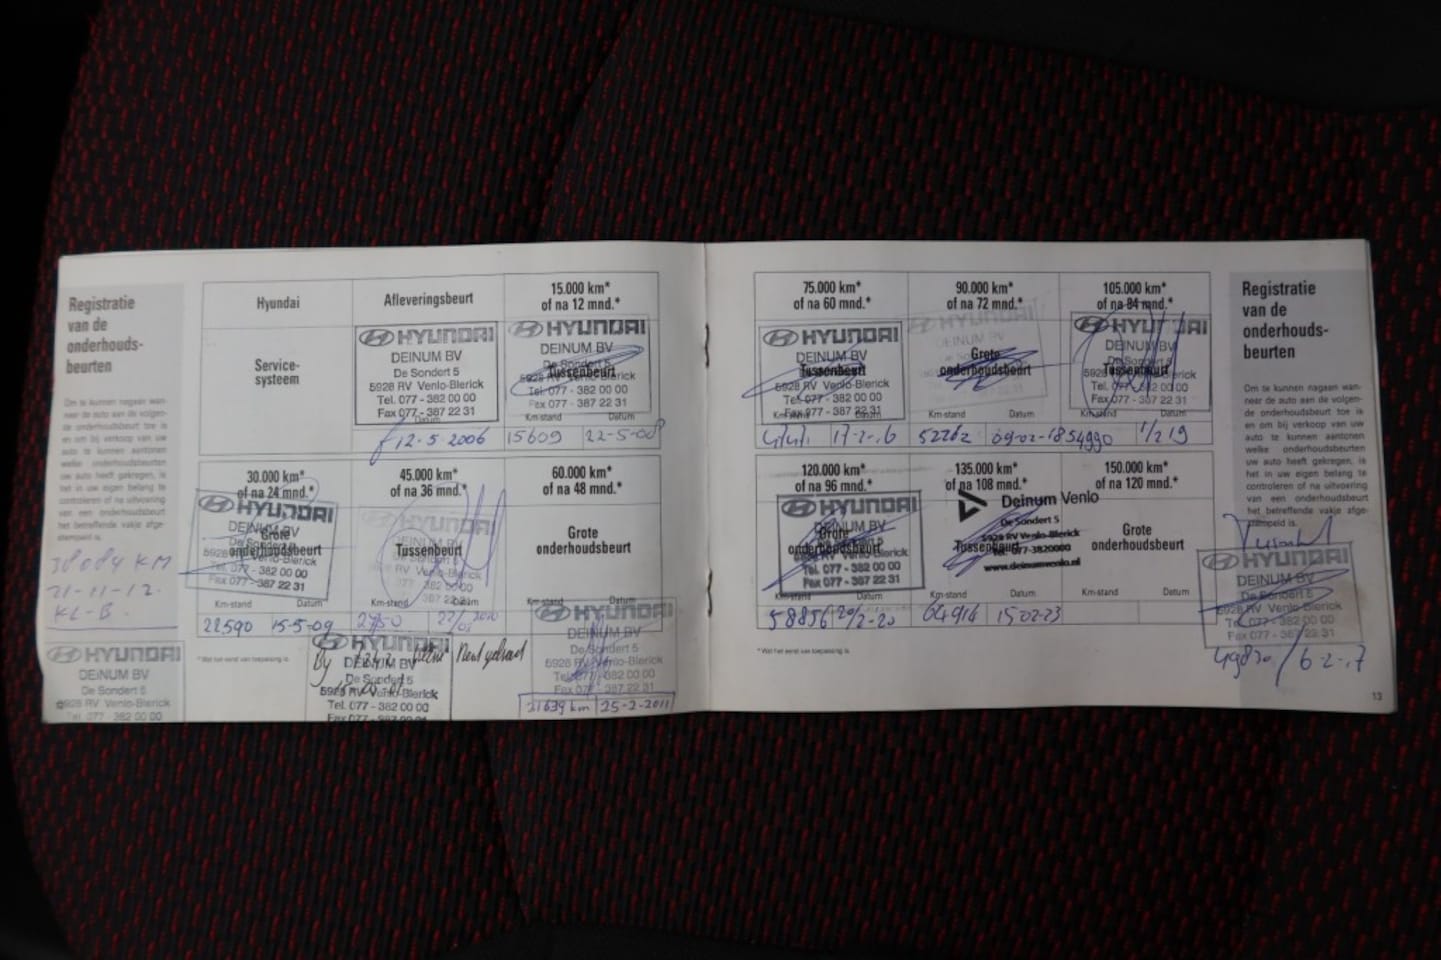 Registratie
van de
onderhouds-
beurten
Om te kunnen nagaan wan-
neer de auto aan de volgen-
de onderhoudsbeurt toe is
en om bij verkoop van uw
auto te kunnen aantonen
welke onderhoudsbeurten
uw auto heeft gekregen, is
het in uw eigen belang te
controleren of na uitvoering
van een onderhoudsbeurt
het betreffende vakje afge-
stempeld is.
38084 KM
21-11-12.
KL-B.
HYUNDAI
DEINUM BV
De Sondert 5
5928 RV Venlo-Blerick
Tel. 077 - 382 00 00
Hyundai
Service-
systeem
Afleveringsbeurt
HYUNDAI
DEINUM BV
De Sondert 5
5928 RV Venlo-Blerick
Tel. 077 - 382 00 00
Fax 077 - 387 22 31
Datum
12-5-2006
15.000 km*
of na 12 mnd.*
HYUNDAI
DEINUM BV
De Sondert 5
Tussenbeurt
5928 RV Venlo-Blerick
Tel. 077 - 382 00 00
Fax 077 - 387 22 31
Km-stand Datum
15609 22-5-08
30.000 km*
of na 24 mnd.*
HYUNDAI
DEINUM BV
De Sondert 5
Grote
onderhoudsbeurt
5928 RV Venlo-Blerick
Tel. 077 - 382 00 00
Fax 077 - 387 22 31
Km-stand Datum
22590 15-5-09
45.000 km*
of na 36 mnd.*
HYUNDAI
Tussenbeurt
Km-stand Datum
60.000 km*
of na 48 mnd.*
Grote
onderhoudsbeurt
Km-stand Datum
* Wat het eerst van toepassing is.
HYUNDAI
DEINUM BV
De Sondert 5
5928 RV Venlo-Blerick
Tel. 077 - 382 00 00
Fax 077 - 387 22 31
HYUNDAI
DEINUM BV
De Sondert 5
5928 RV Venlo-Blerick
Tel. 077 - 382 00 00
Fax 077 - 387 22 31
31639 km 25-2-2011
75.000 km*
of na 60 mnd.*
HYUNDAI
DEINUM BV
De Sondert 5
Tussenbeurt
5928 RV Venlo-Blerick
Tel. 077 - 382 00 00
Fax 077 - 387 22 31
Km-stand Datum
17-2-16
90.000 km*
of na 72 mnd.*
HYUNDAI
Grote
onderhoudsbeurt
Km-stand Datum
52262 09-02-18
105.000 km*
of na 84 mnd.*
HYUNDAI
DEINUM BV
De Sondert 5
Tussenbeurt
5928 RV Venlo-Blerick
Tel. 077 - 382 00 00
Fax 077 - 387 22 31
Km-stand Datum
54990 1/2 19
120.000 km*
of na 96 mnd.*
HYUNDAI
DEINUM BV
De Sondert 5
Grote
onderhoudsbeurt
5928 RV Venlo-Blerick
Tel. 077 - 382 00 00
Fax 077 - 387 22 31
Km-stand Datum
58856 20/2-20
135.000 km*
of na 108 mnd.*
Deinum Venlo
De Sondert 5
5928 RV Venlo-Blerick
Tussenbeurt
Tel: 077-3820000
www.deinumvenlo.nl
Km-stand Datum
64916 15-02-23
150.000 km*
of na 120 mnd.*
Grote
onderhoudsbeurt
Km-stand Datum
* Wat het eerst van toepassing is.
Registratie
van de
onderhouds-
beurten
Om te kunnen nagaan wan-
neer de auto aan de volgen-
de onderhoudsbeurt toe is
en om bij verkoop van uw
auto te kunnen aantonen
welke onderhoudsbeurten
uw auto heeft gekregen, is
het in uw eigen belang te
controleren of na uitvoering
van een onderhoudsbeurt
het betreffende vakje afge-
stempeld is.
HYUNDAI
DEINUM BV
De Sondert 5
5928 RV Venlo-Blerick
Tel. 077 - 382 00 00
Fax 077 - 387 22 31
49830 / 6-2-17
13